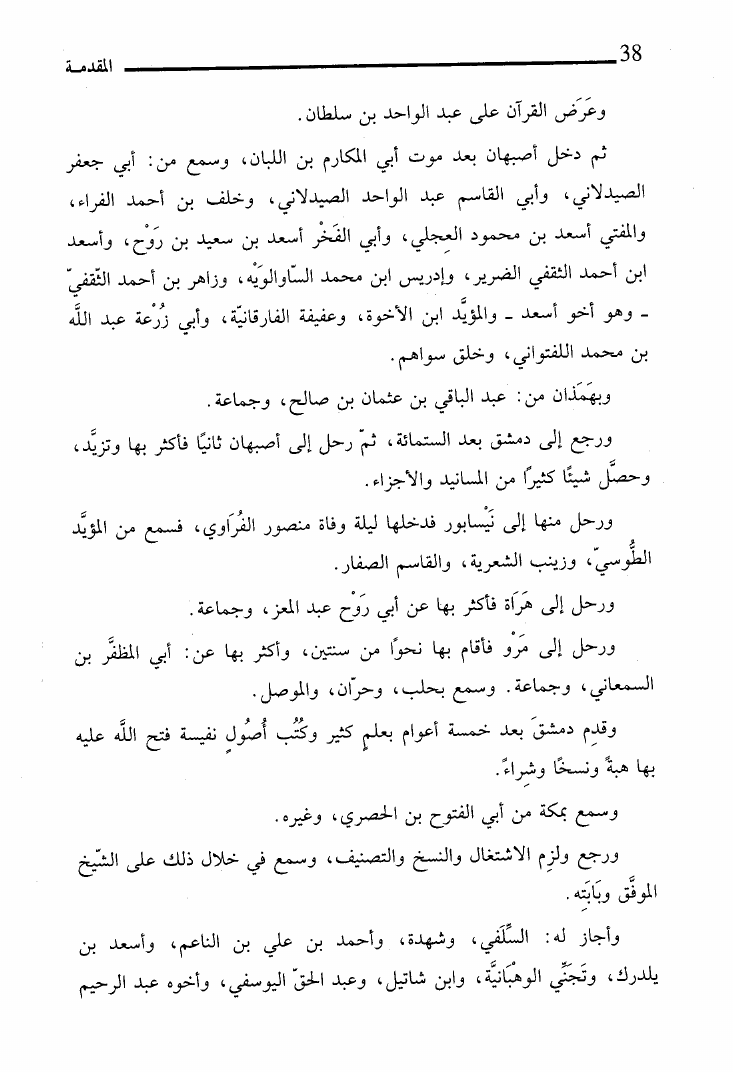 38 المقدمـة
وعَرَض القرآن على عبد الواحد بن سلطان.
ثم دخل أصبهان بعد موت أبي المكارم بن اللبان، وسمع من: أبي جعفر
الصيدلاني، وأبي القاسم عبد الواحد الصيدلاني، وخلف بن أحمد الفراء،
والمفتي أسعد بن محمود العجلي، وأبي الفَخْر أسعد بن سعيد بن رَوْح، وأسعد
ابن أحمد الثقفي الضرير، وإدريس ابن محمد السّاوالوَيْه، وزاهر بن أحمد الثّقفيّ
ـ وهو أخو أسعد ـ والمؤيَّد ابن الأخوة، وعفيفة الفارقانيّة، وأبي زُرْعة عبد اللَّه
بن محمد اللفتواني، وخلق سواهم.
وبهَمَذان من: عبد الباقي بن عثمان بن صالح، وجماعة.
ورجع إلى دمشق بعد الستمائة، ثمّ رحل إلى أصبهان ثانيًا فأكثر بها وتزيَّد،
وحصَّل شيئًا كثيرًا من المسانيد والأجزاء.
ورحل منها إلى نَيْسابور فدخلها ليلة وفاة منصور الفُرَاوي، فسمع من المؤيَّد
الطُّوسيّ، وزينب الشعرية، والقاسم الصفار.
ورحل إلى هَرَاة فأكثر بها عن أبي رَوْح عبد المعز، وجماعة.
ورحل إلى مَرْو فأقام بها نحوًا من سنتين، وأكثر بها عن: أبي المظفَّر بن
السمعاني، وجماعة. وسمع بحلب، وحرّان، والموصل.
وقدِم دمشقَ بعد خمسة أعوام بعلمٍ كثير وكُتُب أُصُولٍ نفيسة فتح اللَّه عليه
بها هبةً ونسخًا وشِراءً.
وسمع بمكة من أبي الفتوح بن الحصري، وغيره.
ورجع ولزِم الاشتغال والنسخ والتصنيف، وسمع في خلال ذلك على الشّيخ
الموفَّق وبَابَتِه.
وأجاز له: السِّلَفي، وشهدة، وأحمد بن علي بن الناعم، وأسعد بن
يلدرك، وتَجَنِّي الوهْبَانيَّة، وابن شاتيل، وعبد الحقّ اليوسفي، وأخوه عبد الرحيم